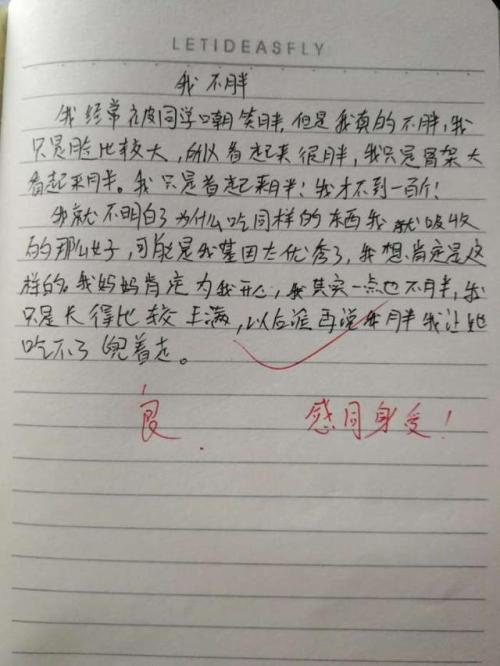 LETIDEASFLY
我不胖
我经常被同学嘲笑胖,但是我真的不胖,我
只是脸比较大,所以看起来很胖,我只是骨架大
看起来胖。我只是看起来胖!我才不到一百斤!
我就不明白了为什么吃同样的东西我就吸收
的那么好,可能是我基因太优秀了,我想肯定是这
样的,我妈妈肯定为我开心,我其实一点也不胖,我
只是长得比较丰满,以后谁再说我胖我让他
吃不了兜着走。
良
感同身受!